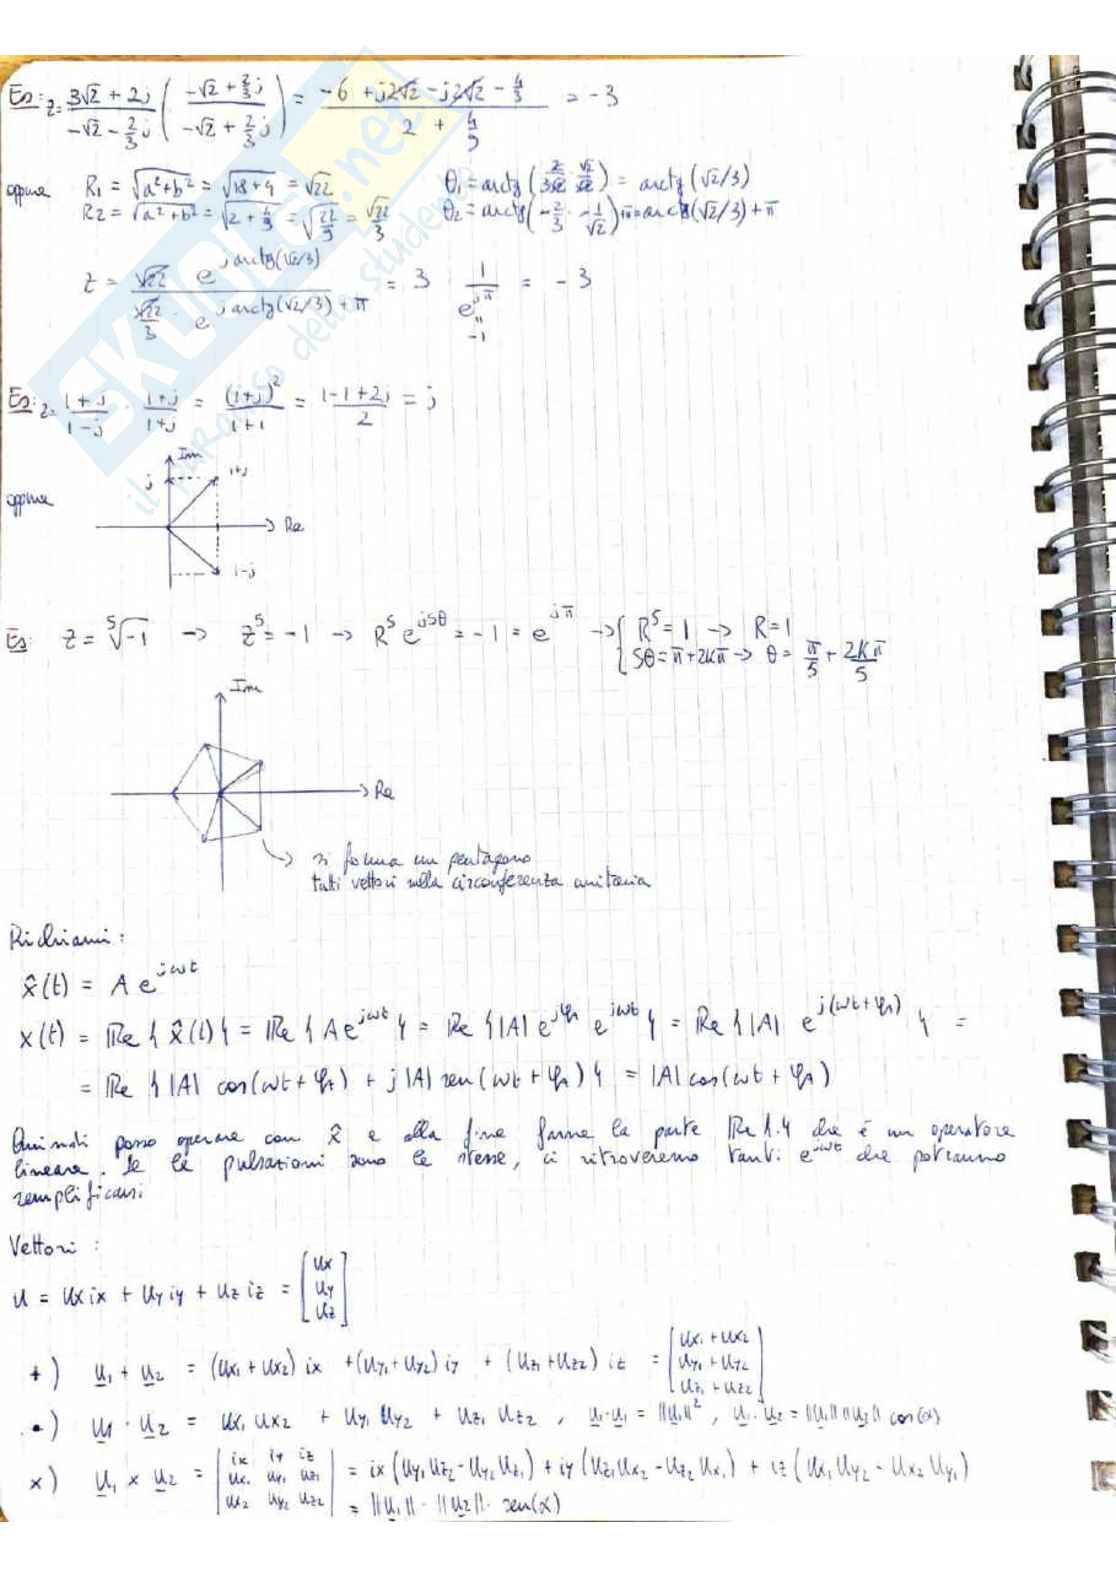 Es: z = (3√2 + 2j)/(-√2 - 2/3 j) ( (-√2 + 2/3 j)/(-√2 + 2/3 j) ) = (-6 + j2√2 - j2√2 - 4/3)/(2 + 4/9) = -3
oppure R1 = √(a²+b²) = √(18+4) = √22 θ1 = arctg(2/(3√2) · √2/√2) = arctg(√2/3)
R2 = √(a²+b²) = √(2+4/9) = √(22/9) = √22/3 θ2 = arctg(-2/3 · -1/√2) + π = arctg(√2/3) + π
z = (√22 e^(j arctg(√2/3)))/(√22/3 · e^(j arctg(√2/3) + π)) = 3 1/e^(jπ) = -3
" -1
Es: z = (1+j)/(1-j) · (1+j)/(1+j) = (1+j)²/(1+1) = (1-1+2j)/2 = j
Im
j 1+j
oppure
Re
1-j
Es: z = ⁵√-1 → z⁵ = -1 → R⁵ e^(j5θ) = -1 = e^(jπ) → { R⁵ = 1 → R = 1
5θ = π + 2kπ → θ = π/5 + 2kπ/5
Im
Re
si forma un pentagono
tutti vettori sulla circonferenza unitaria
Richiami:
x̂(t) = A e^(jωt)
x(t) = Re{x̂(t)} = Re{A e^(jωt)} = Re{|A| e^(jφA) e^(jωt)} = Re{|A| e^(j(ωt+φA))} =
= Re{|A| cos(ωt + φA) + j|A| sen(ωt + φA)} = |A| cos(ωt + φA)
Quindi posso operare con x̂ e alla fine farne la parte Re{.} che è un operatore
lineare. Se le pulsazioni sono le stesse, ci ritroveremo tanti e^(jωt) che potranno
semplificarsi
Vettori:
u = ux ix + uy iy + uz iz = [ux uy uz]
+) u1 + u2 = (ux1 + ux2) ix + (uy1 + uy2) iy + (uz1 + uz2) iz = [ux1 + ux2 uy1 + uy2 uz1 + uz2]
•) u1 · u2 = ux1 ux2 + uy1 uy2 + uz1 uz2 , u1·u1 = ||u1||² , u1·u2 = ||u1|| ||u2|| cos(α)
x) u1 × u2 = |ix iy iz ux1 uy1 uz1 ux2 uy2 uz2| = ix (uy1 uz2 - uy2 uz1) + iy (uz1 ux2 - uz2 ux1) + iz (ux1 uy2 - ux2 uy1)
= ||u1|| · ||u2|| · sen(α)
SKUOLA.net
il paradiso dello studente